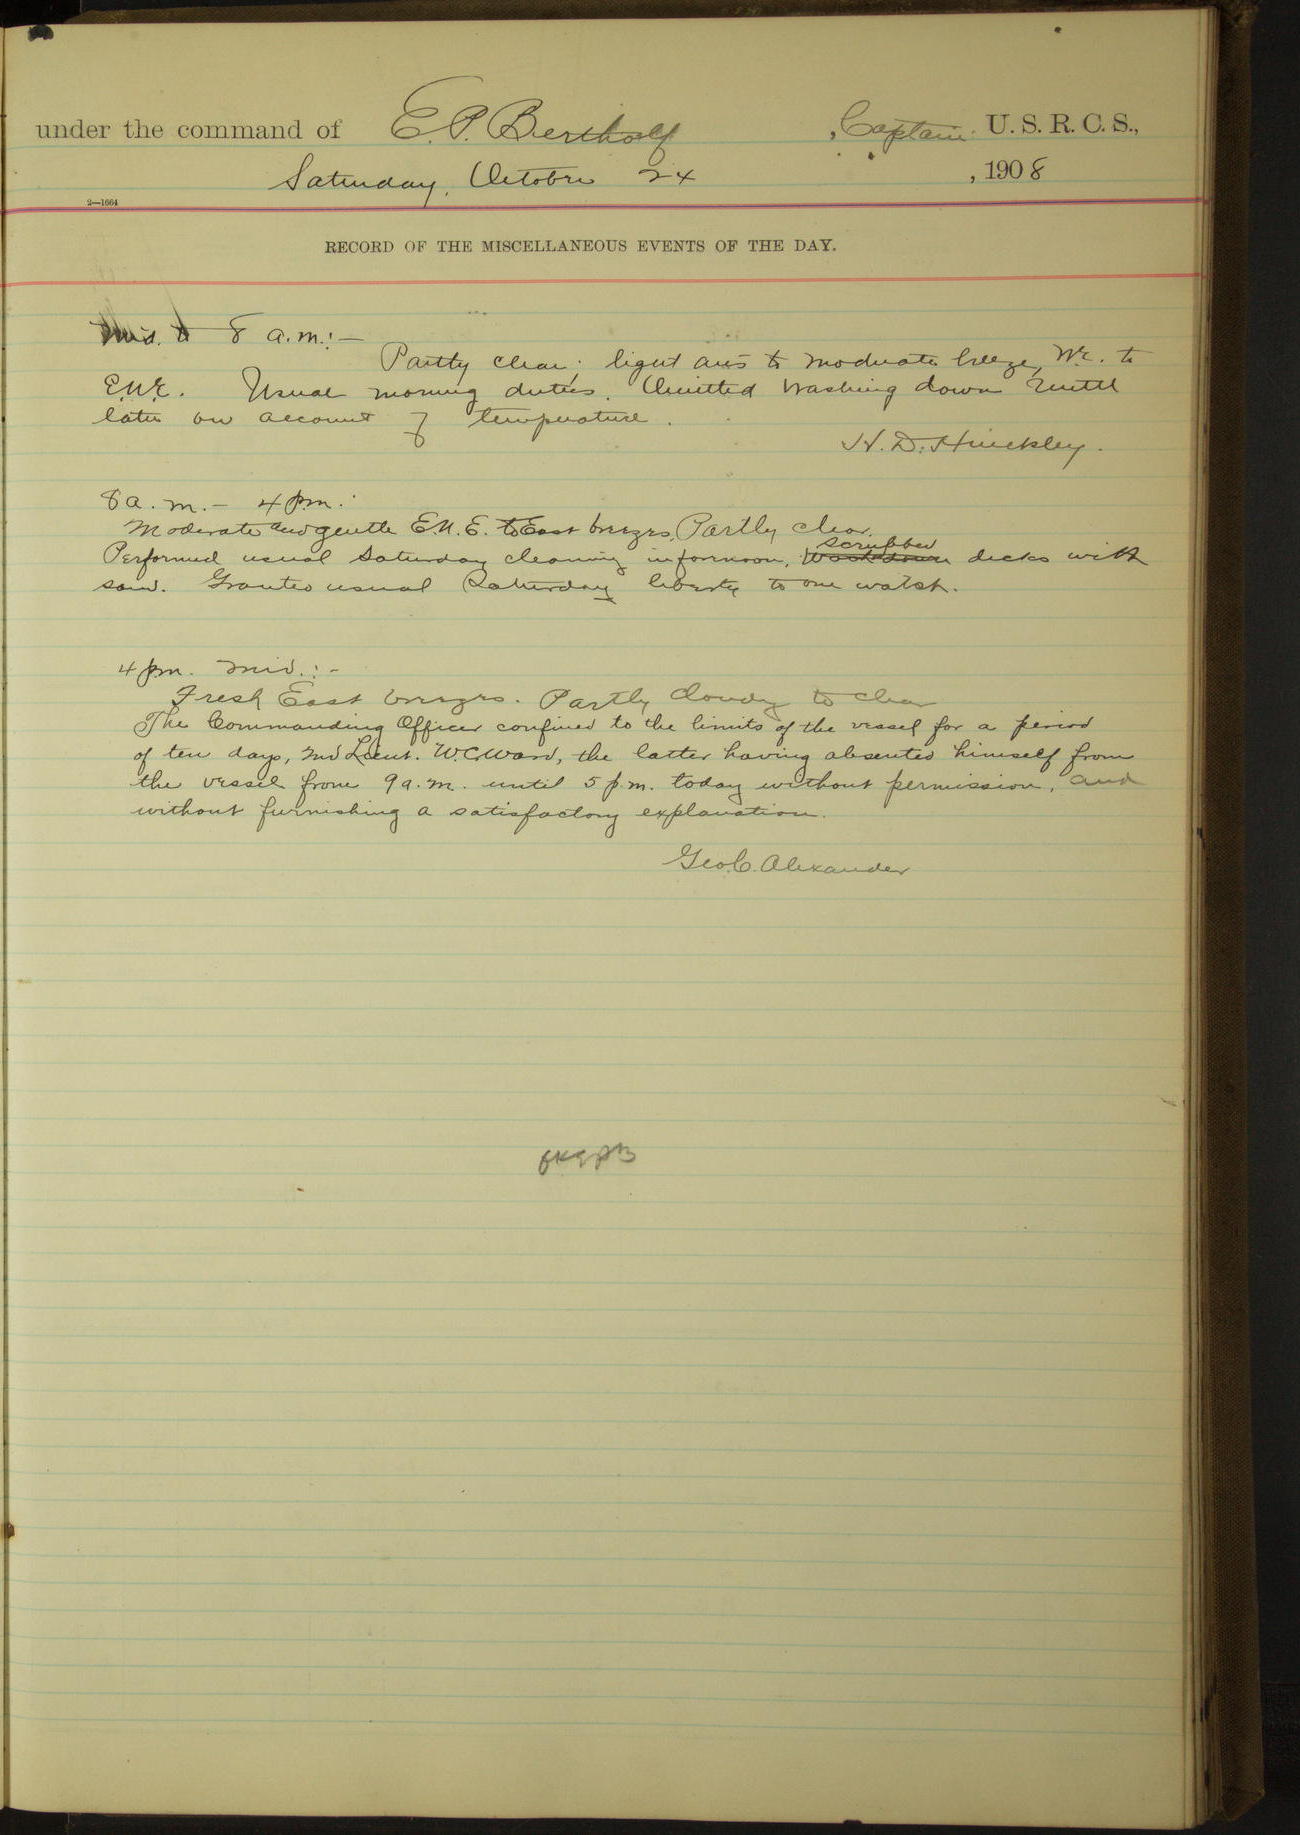 under the command of E. P. Bertholf, Captain U. S. R. C. S.,
Saturday, October 24, 1908
2—1664
RECORD OF THE MISCELLANEOUS EVENTS OF THE DAY.
Mid. to 8 a.m.:—
Partly clear; light airs to moderate breeze, NE. to
E.N.E. Usual morning duties. Omitted washing down until
later on account of temperature.
H. D. Hinckley.
8 a.m. – 4 p.m.:
Moderate and gentle E.N.E. to East breezes. Partly clear.
Performed usual Saturday cleaning in forenoon, scrubbed decks with
sand. Granted usual Saturday liberty to one watch.
4 p.m. Mid.:-
Fresh East breezes. Partly cloudy to clear
The Commanding Officer confined to the limits of the vessel for a period
of ten days, 2nd Lieut. W.C. Ward, the latter having absented himself from
the vessel from 9 a.m. until 5 p.m. today without permission, and
without furnishing a satisfactory explanation.
Geo. C. Alexander
OK EPB